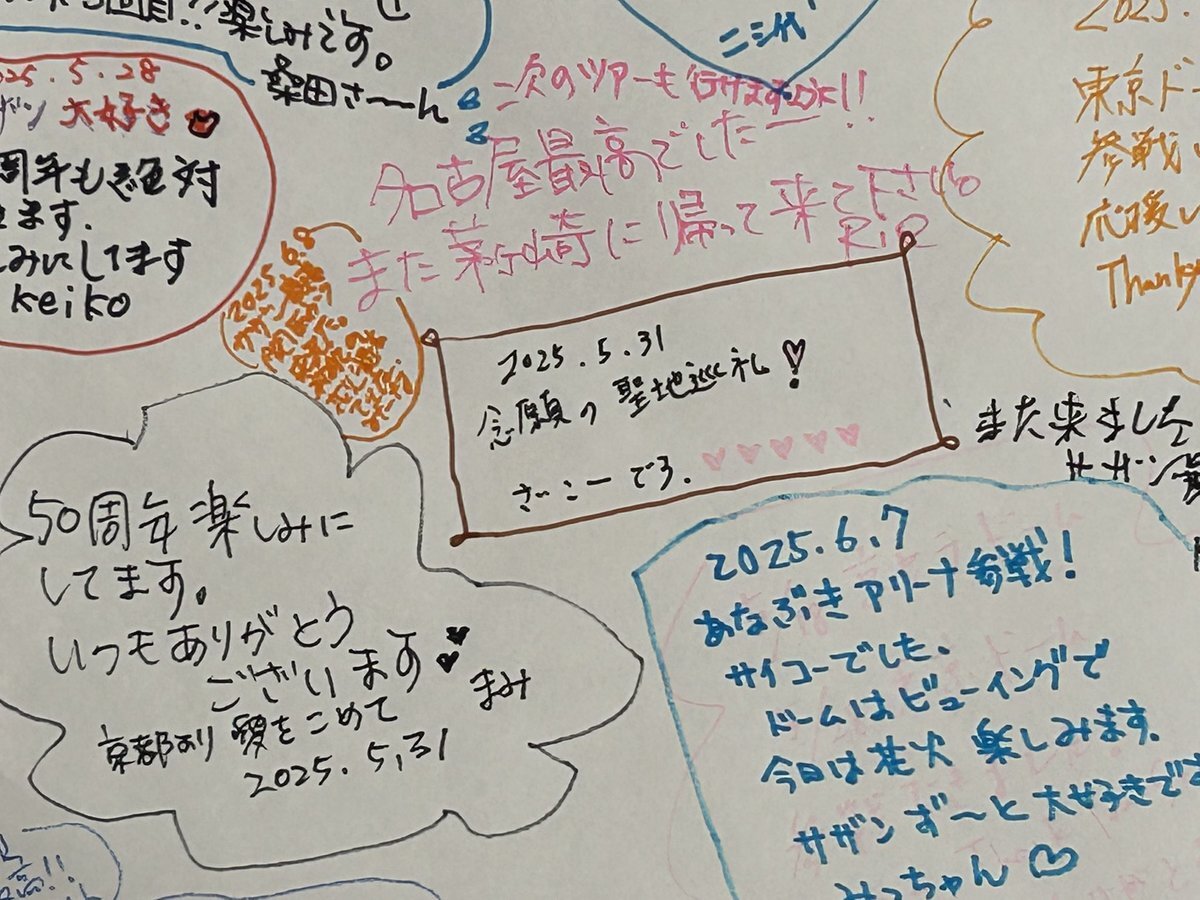 回目!!楽しみです。
桑田さ〜〜ん
ニシ代
2025.
東京ド
参戦
応援
Thanky
5.28
大好き
周年も絶対
きます.
しみにしてます
keiko
二次のツアーも行けますように!!
名古屋最高でしたー!!
また茅ヶ崎に帰って来て下さい。
RiE
2025.5.31
念願の聖地巡礼!
さいこーでろ.
また来ました
サザン最
50周年楽しみに
してます。
いつもありがとう
ございます
まみ
京都より愛をこめて
2025.5.31
2025.6.7
あなぶきアリーナ参戦!
サイコーでした、
ドームはビューイングで
今日は花火楽しみます.
サザンず〜と大好きです
みっちゃん